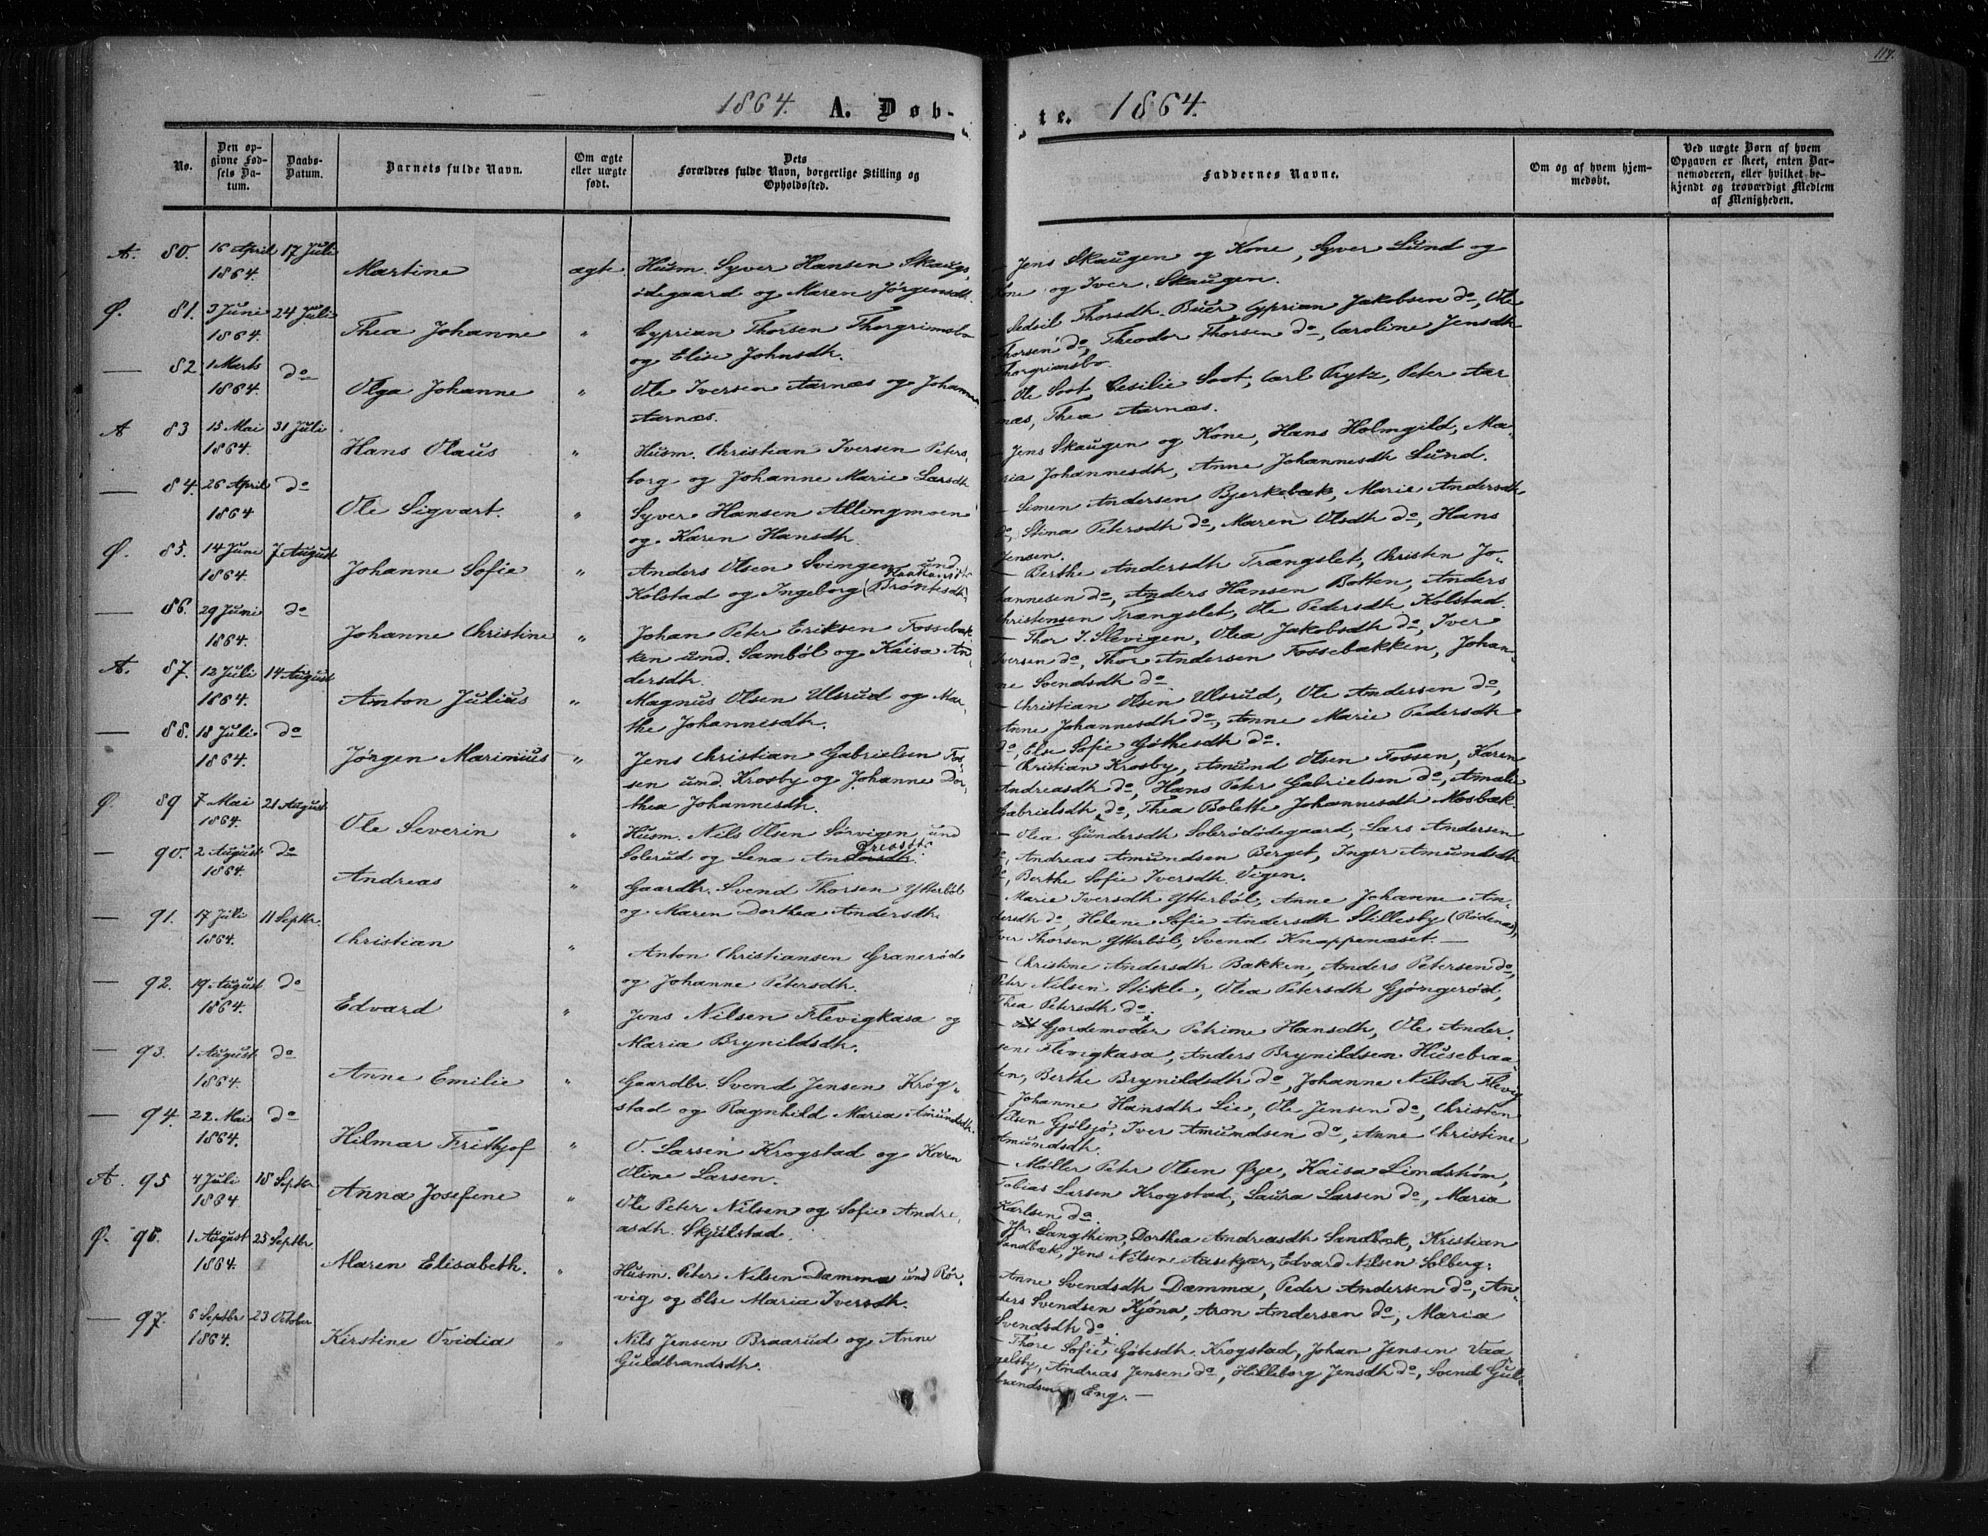 117.
1864. A. Døb-
te. 1864.
No.
Den op-
givne Fød-
sels Da-
tum.
Daabs-
Datum.
Barnets fulde Navn.
Om ægte
eller uægte
født.
Dets
Forældres fulde Navn, borgerlige Stilling og
Opholdssted.
Faddernes Navne.
Om og af hvem hjem-
medøbt.
Ved uægte Børn af hvem
Opgaven er skeet, enten Bar-
nemoderen, eller hvilket be-
kjendt og troværdigt Medlem
af Menigheden.
A. 80. 16 April 17 Juli
1864. Martine ægte. Husm. Syver Hansen Skaugs-
ødegaard og Maren Jørgensdt.
— Jens Skaugen og Kone, Syver Lund og
Kone og Iver Skaugen.
Ø. 81. 3 Juni 24 Juli
1864. Thea Johanne " Cyprian Thorsen Thorgrimsbø
og Elise Johnsdh.
— Sedsil Thorsdh. Buer, Cyprian Jakobsen do, Ole
Thorsen do, Theodor Thorsen do, Caroline Jensdh
Thorgrimsbø.
— 82 1 Marts do
1864. Olga Johanne " Ole Iversen Aarnæs og Johanna
Aarnæs.
— Ole Soot, Cesilie Soot, Carl Prytz, Peter Aar-
næs, Thea Aarnæs.
A 83 15 Mai 31 Juli
1864. Hans Olaus " Husm. Christian Iversen Peters-
borg og Johanne Marie Larsdh
— Jens Skaugen og Kone, Hans Holmgild, Ma-
ria Johannesdh, Anne Johannesdh Lund.
— 84. 26 April do
1864 Ole Sigvart. " Syver Hansen Allingmoen
og Karen Hansdh.
— Simen Andersen Bjerkebæk, Marie Andersdh
do, Stina Petersdh do, Maren Olsdh do, Hans
Jensen.
Ø. 85. 14 Juni 7 August
1864. Johanne Sofie " Anders Olsen Svingen und.
Kolstad og Ingeborg (Brøntesdh)
— Berthe Andersdh Trængslet, Christen Jo-
hannesen do, Anders Hansen Botten, Anders
Christensen Trængslet, Ole Pedersdh Kolstad.
— 86. 29 Juni do
1864. Johanne Christine " Johan Peter Eriksen Fossebak-
ken und. Sambøl og Kaisa An-
dersdh.
— Thor I. Slevigen, Olea Jakobsdh do, Iver
Iversen do, Thor Andersen Fossebakken, Johan-
ne Svendsdh do.
A. 87. 12 Juli 14 August
1864. Anton Julius " Magnus Olsen Ulsrud og Mar-
the Johannesdh.
— Christian Olsen Ulsrud, Ole Andersen do,
Anne Johannesdh do, Anne Marie Pedersdh
do, Else Sofie Gøthesdh do.
— 88. 18 Juli do
1864. Jørgen Marinius " Jens Christian Gabrielsen Fos-
sen und. Krosby og Johanne Dor-
thea Johannesdh.
— Christian Krosby, Amund Olsen Fossen, Karen
Andreasdh do, Hans Peter Gabrielsen do, Amalie
Gabrielsdh do, Thea Bolette Johannesdh Mosbæk.
Ø. 89 7 Mai 21 August
1864. Ole Severin " Husm. Nils Olsen Sørvigen und
Solerud og Lena Andersdh.
— Olea Gundersdh Solerødødegaard, Lars Andersen
do, Andreas Amundsen Berget, Inger Amundsdh
do, Berthe Sofie Iversdh Vigen.
— 90. 2 August do
1864. Andreas " Gaardbr. Svend Thorsen Ytterbøl
og Maren Dorthea Andersdh.
Marie Iversdh Ytterbøl, Anne Johanne An-
dersdh do, Helene Sofie Andersdh Stillesby (Rødenæs),
Iver Thorsen Ytterbøl, Svend Knappenæset. —
— 91. 17 Juli 11 Septbr.
1864. Christian " Anton Christiansen Granerød
og Johanne Petersdh.
— Christine Andersdh Bakken, Anders Petersen do,
Peter Nilsen Stikle, Olea Petersdh Gjøngerød,
Thea Petersdh do.
— 92. 19 August do
1864. Edvard " Jens Nilsen Flevigkasa og
Maria Brynildsdh.
— Gjordemoder Petrine Hansdh, Ole Ander-
sen Flevigkasa, Anders Brynildsen Husebraa-
ten, Berthe Brynildsdh do, Johanne Nilsdr Flevig
— 93. 1 August do
1864. Anne Emilie " Gaardbr. Svend Jensen Krog-
stad og Ragnhild Maria Amundsdh.
— Johanne Hansdh Lie, Ole Jensen do, Christen
Nilsen Gjølsjø, Iver Amundsen do, Anne Christine
Amundsdh.
— 94. 22 Mai do
1864. Hilmar Frithjof " O. Larsen Krogstad og Karen
Oline Larsen.
— Møller Peter Olsen Ørje, Kaisa Lindstrøm,
Tobias Larsen Krogstad, Laura Larsen do, Maria
Karlsen do.
A. 95 4 Juli 18 Septbr
1864 Anna Josefine " Ole Peter Nilsen og Sofie Andre-
asdh. Skjulstad.
— Langthim, Dorthea Andreasdh Sandbæk, Kristian
Sandbæk, Jens Nilsen Aasekjær, Edvard Nilsen Solberg.
Ø. 96. 1 August 25 Septbr
1864. Maren Elisabeth. " Husm. Peter Nilsen Dæmma und Rør-
vig og Else Maria Iversdh.
Anne Svendsdh Dæmma, Peder Andersen do, An-
ders Svendsen Kjøna, Aron Andersen do, Maria
Svendsdh do.
— 97. 6 Septbr 23 October
1864. Kirstine Ovidia " Nils Jensen Braarud og Anne
Guldbrandsdh.
— Thore Sofie Gøtesdh Krogstad, Johan Jensen Vaa-
gelsby, Andreas Jensen do, Hilleborg Jensdh do, Svend Gul-
brandsen Eng. —